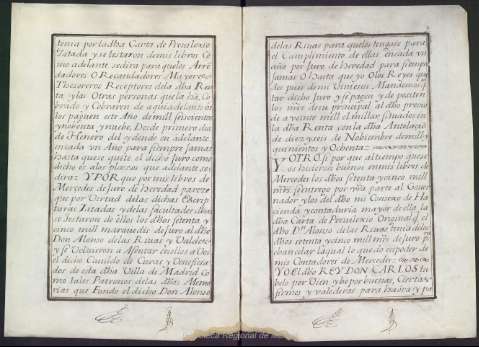 tenia por la dha Carta de Preuilexio
Tetada y se testaron demis libros Co
mo adelante sedira para quelos Arre
dadores O Recaudadores Mayores
Thesoreros Receptores dela dha Ren
ta y las Otras personas que la hã Co
brado y Cobraren de aqui adelante os
los paguen este Año de mill Seiscientos
ynoventa ynuebe Desde primero dia
de Henero del ydende en adelante
encada vn Año para siempre Jamas
hasta que se quite el dicho Juro como
dicho es alos plazos que adelante se
dira: Y POR que por mis libros de
Mercedes de Juro de heredad parece
que por Virtud delas dichas Escrip
turas Zitadas y delas facultades dhas
se testaron de ellos los dhos setenta y
cinco mill marauedis de Juro al dho
Don Alonso delas Riuas y Valdete
y se Voluieron a Asentar enellos a Vos
el dicho Cauildo de Curas y Beneficia
dos de esta dha Villa de Madrid Co
mo tales Patronos delas dhas Memo
rias que Fundo el dicho Don Alonso
delas Riuas para quelos tengais para
el Cumplimiento de ellas encada vn
año por Juro de heredad para siempre
Jamas O hasta que yo Olos Reyes que
des pues demi Vinieren Mandemos qui
tar dicho Juro y se paguen y de pociten
los mrs de su principal al dho precio
de a veinte mill el millar situados en
la dha Renta con la dha Antelacion
de diez yseis de Nobiembre de mill y
quinientos y Ochenta
Y OTRO si por que al tiempo que se
Os hicieron buenos en mis libros de
Mercedes los dhos setenta ycinco mill
mrs se entrego por vra parte al Gouer
nador y los del dho mi Consejo de Ha
cienda y contaduria mayor de ella la
dha Carta de Preuilexio Original q el
dho Dn Alonso delas Riuas tenia delos
dhos setenta ycinco mill mrs de Juro pa
chancelar laqual le quedo en poder de
mis Contadores de Mercedes
YO El dho REY DON CARLOS tu
belo por Vien y he por buenas, Ciertas
firmes y valederas para haora y pa